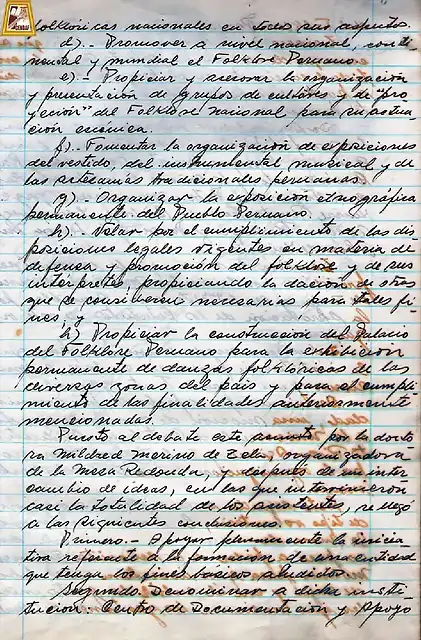 folklóricas nacionales en todos sus aspectos.
d).- Promover a nivel nacional, conti
nental y mundial el Folklore Peruano.
e).- Propiciar y asesorar la organización
y presentación de grupos de cultores y de "pro
yección" del Folklore nacional para su actua
ción escénica.
f).- Fomentar la organización de exposiciones
del vestido, del instrumental musical y de
las artesanías tradicionales peruanas.
g).- Organizar la exposición etnográfica
permanente del Pueblo Peruano.
h).- Velar por el cumplimiento de las dis
posiciones legales vigentes en materia de
defensa y promoción del folklore y de sus
intérpretes, propiciando la dación de otras
que se consideren necesarias para tales fi
nes, y
Propiciar la construcción del Palacio
del Folklore Peruano para la exhibición
permanente de danzas folklóricas de las
diversas zonas del país y para el cumpli
miento de las finalidades anteriormente
mencionadas.
Puesto al debate este asunto por la docto
ra Mildred Merino de Zela, organizadora
de la Mesa Redonda, y después de un inter
cambio de ideas, en las que intervinieron
casi la totalidad de los asistentes, se llegó
a las siguientes conclusiones.
Primero.- Apoyar plenamente la inicia
tiva referente a la formación de una entidad
que tenga los fines básicos aludidos.
Segundo. Denominar a dicha insti
tución: Centro de Documentación y Apoyo